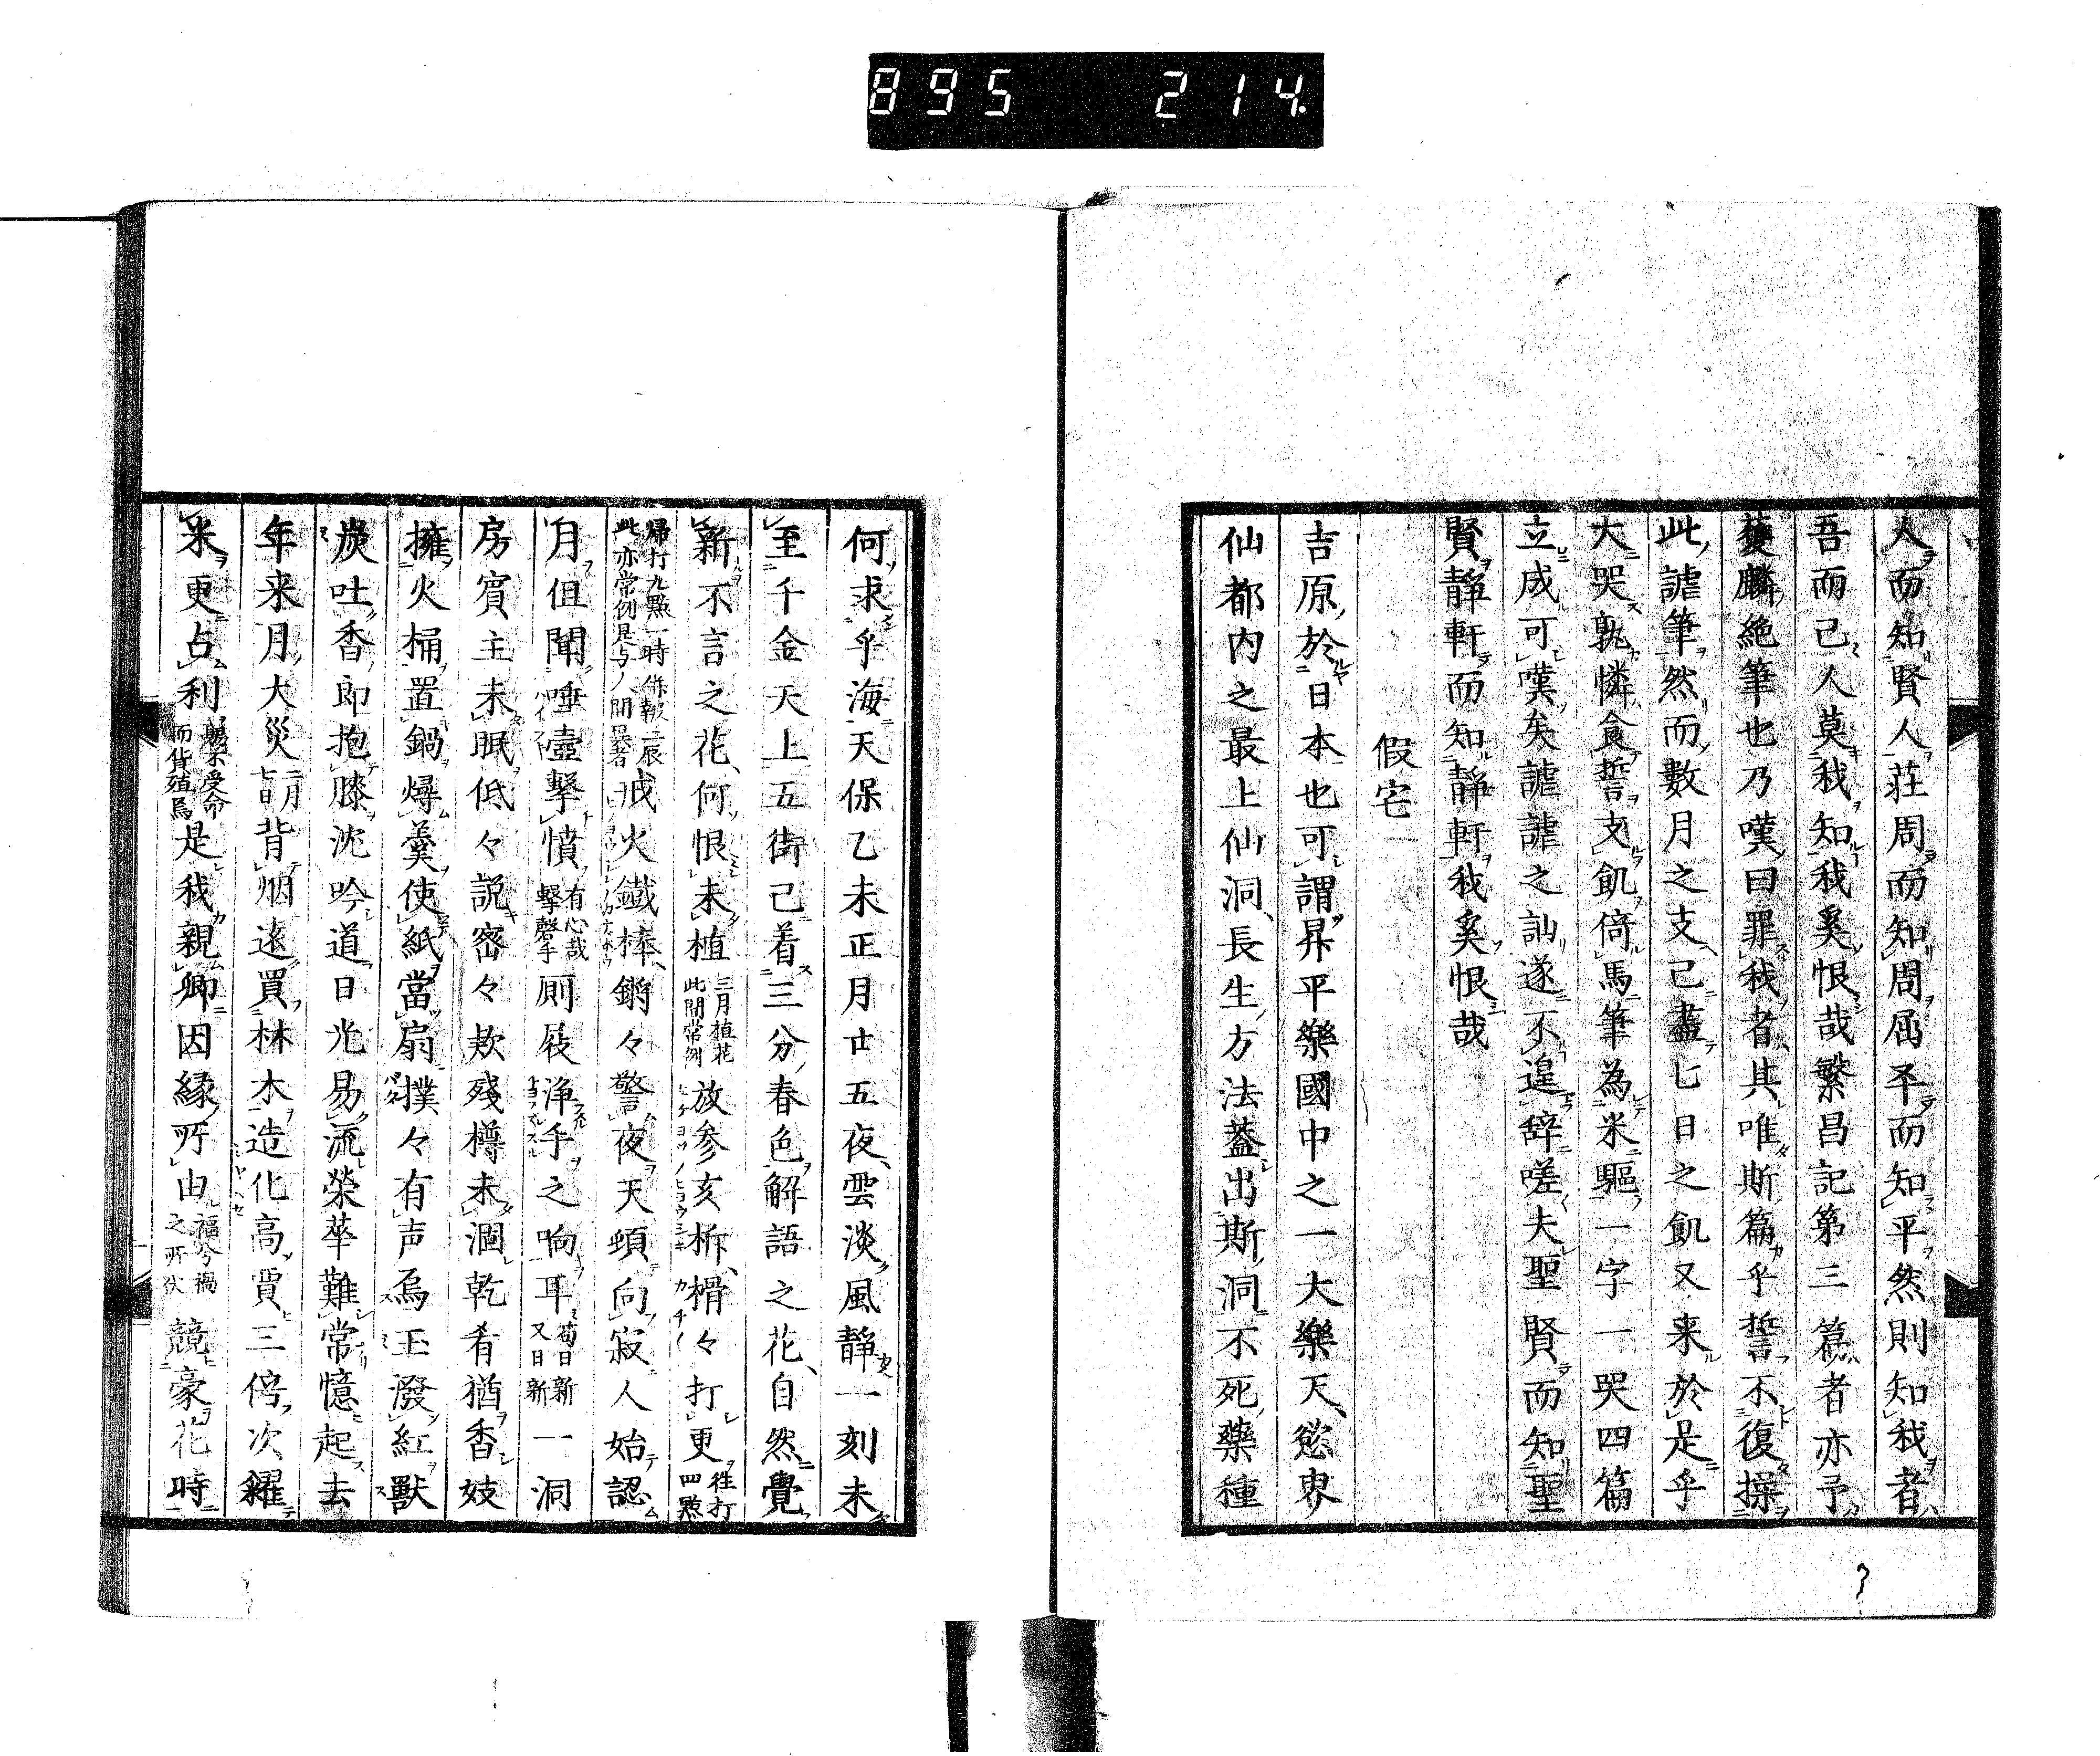 895 214.
人而知賢人荘周而知周屈平而知平然則知我者
吾而己人莫我知我奚恨哉繁昌記第三篇者亦予
獲麟絶筆也乃嘆曰罪我者其唯斯篇乎誓不復操
此謔筆然而數月之支己盡七日之飢又来於是乎
大哭孰憐食誓支飢倚馬筆為米驅一字一哭四篇
立成可嘆矣謔謔之訕遂不遑辞嗟夫聖賢而知聖
賢靜軒而知靜軒我奚恨哉
假宅
吉原於日本也可謂昇平樂國中之一大樂天慾界
仙都内之最上仙洞長生方法蓋出斯洞不死藥種
何求乎海天保乙未正月廿五夜雲淡風静一刻未
至千金天上五街己着三分春色解語之花自然覺
新不言之花何恨未植三月植花此間常例放参亥柝榾々打更徃打四點
帰打九點一時併報二辰此亦常例是与人間異者戒火鐵棒鏘々警夜天頭向寂人始認
月但聞唾壷擊憤有心哉擊磬乎厠屐浄手之响耳苟日新又日新一洞
房賓主未眠低々説密々款残樽未涸乾肴猶香妓
擁火桶置鍋燖羹使紙當扇撲々有声烏玉潑紅獸
炭吐香郎抱膝沈吟道日光易流榮華難常憶起去
年来月大災二月七日背烟遠買林木造化高賈三倍次糶
米更占利賜不受命而貨殖焉是我親卿因縁所由福兮禍之所伏競豪花時